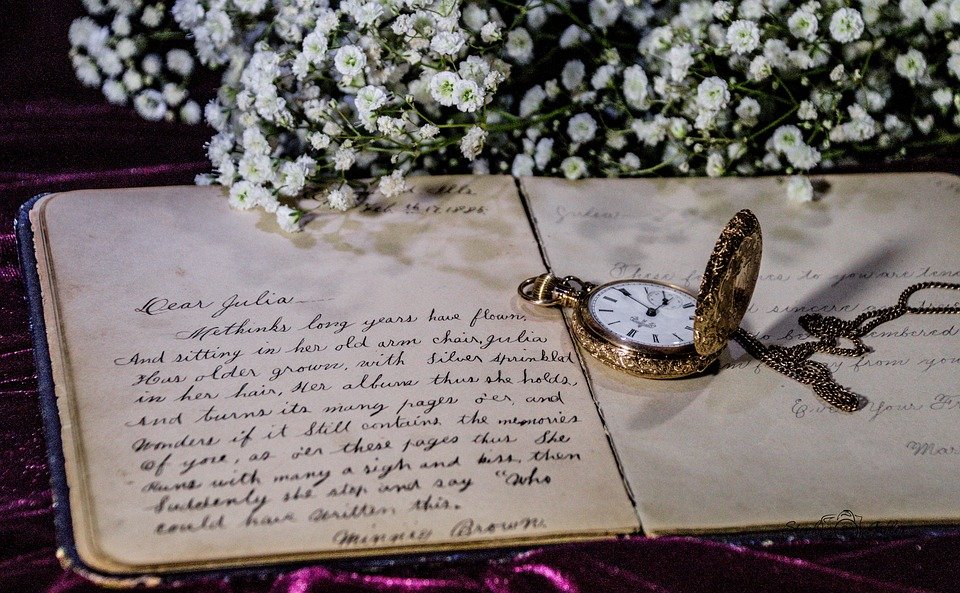 1886
Dear Julia
Methinks long years have flown,
And sitting in her old arm chair, Julia
Has older grown, with Silver sprinkled
in her hair, Her album thus she holds,
And turns its many pages o'er, and
Wonders if it Still contains the memories
Of yore, as o'er these pages thus She
Runs with many a sigh and kiss, then
Suddenly she stop and say "Who
could have written this.
Minnie Brown.
Julia
These few lines to you are
sincere
remembered
from you
Ever Your